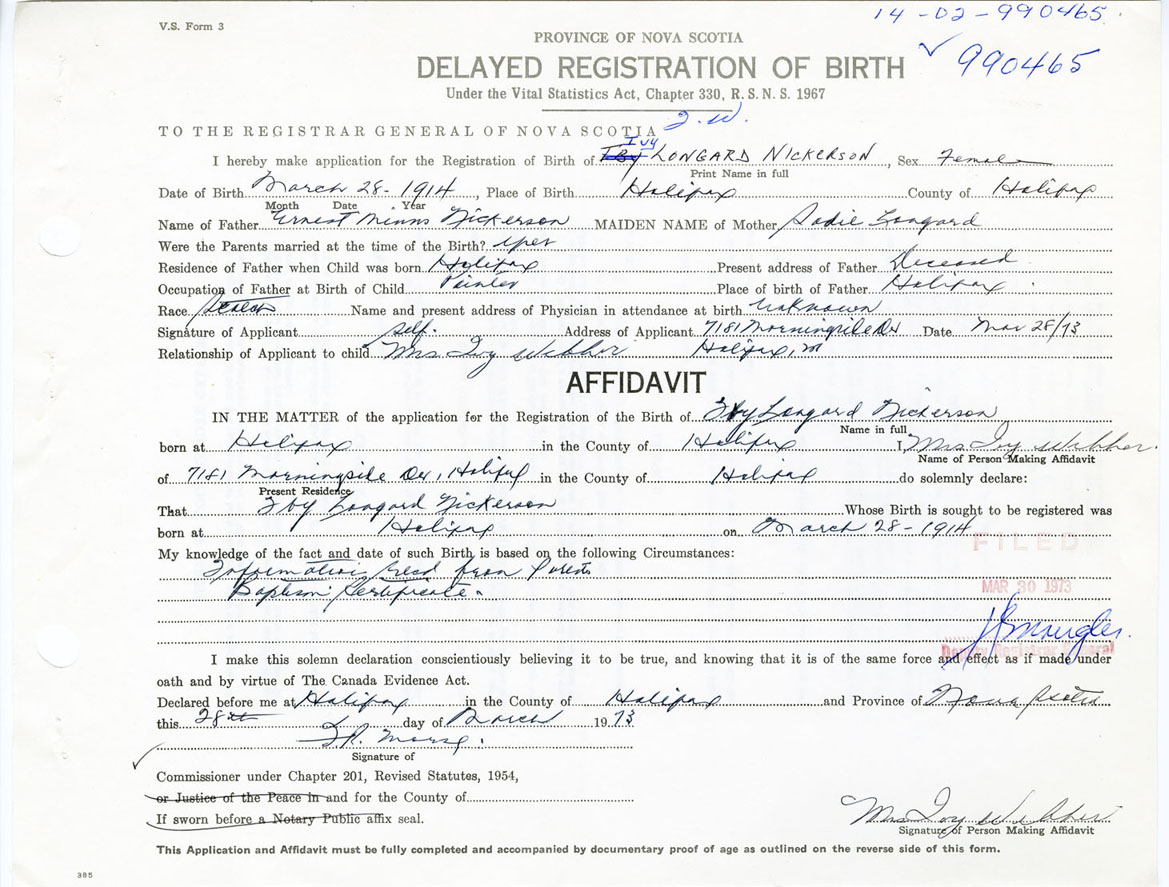 V.S. Form 3
14-02-990465
PROVINCE OF NOVA SCOTIA
DELAYED REGISTRATION OF BIRTH
990465
Under the Vital Statistics Act, Chapter 330, R. S. N. S. 1967
TO THE REGISTRAR GENERAL OF NOVA SCOTIA
Ivy
I hereby make application for the Registration of Birth of Iby LONGARD NICKERSON, Sex Female
Print Name in full
Date of Birth March 28 - 1914, Place of Birth Halifax County of Halifax
Month Date Year
Name of Father Ernest Minns Nickerson MAIDEN NAME of Mother Sadie Longard
Were the Parents married at the time of the Birth? yes
Residence of Father when Child was born Halifax Present address of Father Deceased
Occupation of Father at Birth of Child Painter Place of birth of Father Halifax
Race Name and present address of Physician in attendance at birth unknown
Signature of Applicant self. Address of Applicant 7181 Morningside Dr Date Mar 28/73
Relationship of Applicant to child Mrs Ivy Webber Halifax,
AFFIDAVIT
IN THE MATTER of the application for the Registration of the Birth of Longard Nickerson
Name in full
born at Halifax in the County of Halifax I, Mrs Ivy Webber
Name of Person Making Affidavit
of 7181 Morningside Dr, Halifax in the County of Halifax do solemnly declare:
Present Residence
That Iby Longard Nickerson Whose Birth is sought to be registered was
born at Halifax on March 28 - 1914
FILED
My knowledge of the fact and date of such Birth is based on the following Circumstances:
Information Recd from Parents
MAR 30 1973
Baptism Certificate.
Deputy Registrar General
I make this solemn declaration conscientiously believing it to be true, and knowing that it is of the same force and effect as if made under
oath and by virtue of The Canada Evidence Act.
Declared before me at Halifax in the County of Halifax and Province of Nova Scotia
this 28th day of March 1973
Signature of
Commissioner under Chapter 201, Revised Statutes, 1954,
or Justice of the Peace in and for the County of
If sworn before a Notary Public affix seal.
Mrs Ivy Webber
Signature of Person Making Affidavit
This Application and Affidavit must be fully completed and accompanied by documentary proof of age as outlined on the reverse side of this form.
385